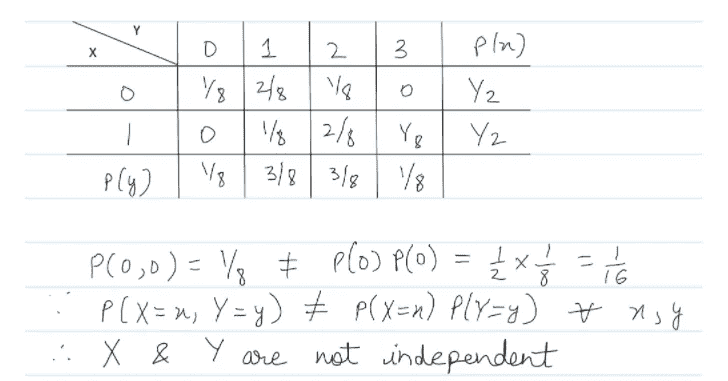 X Y 0 1 2 3 P(x)
0 1/8 2/8 1/8 0 1/2
1 0 1/8 2/8 1/8 1/2
P(y) 1/8 3/8 3/8 1/8
P(0,0) = 1/8 ≠ P(0) P(0) = 1/2 × 1/8 = 1/16
∵ P(X=x, Y=y) ≠ P(X=x) P(Y=y) ∀ x, y
∴ X & Y are not independent